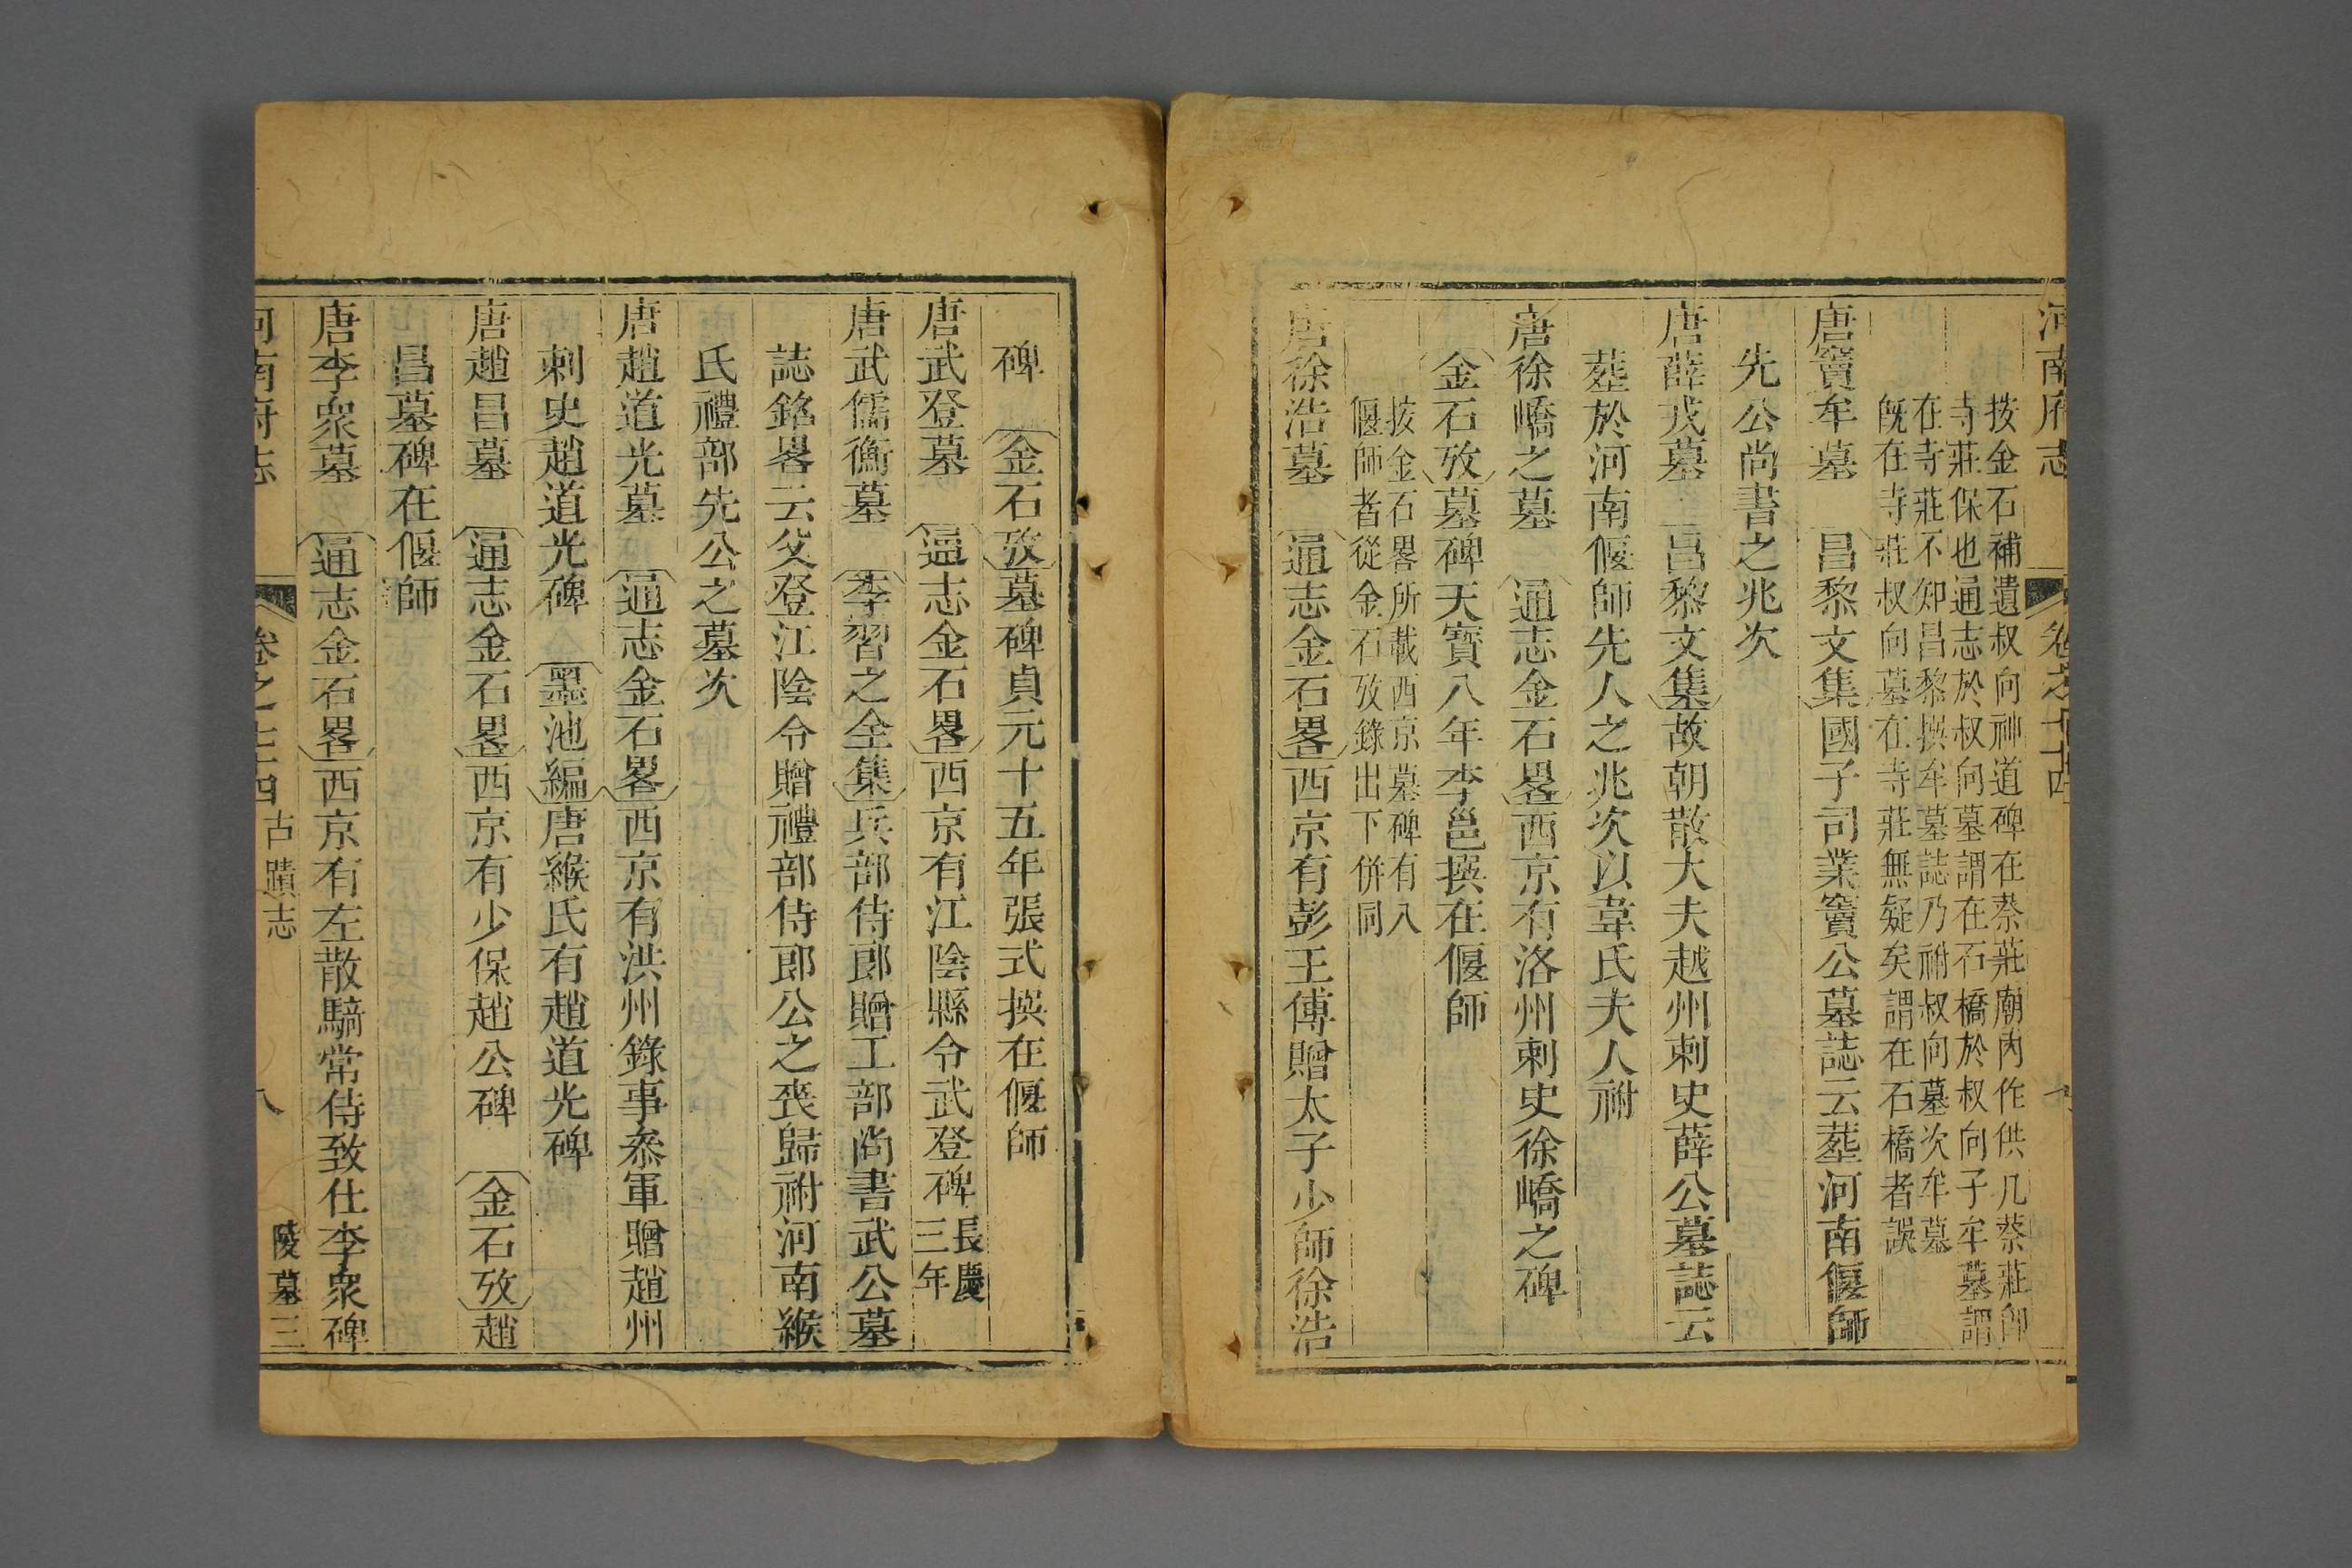 河南府志 卷之七十四
按金石補遺叔向神道碑在蔡莊廟內作供几蔡莊卽
寺莊保也通志於叔向墓謂在石橋於叔向子牟墓謂
在寺莊不知昌黎撰牟墓誌乃祔叔向墓次牟墓
旣在寺莊叔向墓在寺莊無疑矣謂在石橋者誤
唐竇牟墓 昌黎文集國子司業竇公墓誌云葬河南偃師
先公尚書之兆次
唐薛戎墓 昌黎文集故朝散大夫越州刺史薛公墓誌云
葬於河南偃師先人之兆次以韋氏夫人祔
唐徐嶠之墓 通志金石畧西京有洛州刺史徐嶠之碑
金石攷墓碑天寶八年李邕撰在偃師
按金石畧所載西京墓碑有入
偃師者從金石攷錄出下併同
唐徐浩墓 通志金石畧西京有彭王傅贈太子少師徐浩
碑 金石攷墓碑貞元十五年張式撰在偃師
唐武登墓 通志金石畧西京有江陰縣令武登碑長慶三年
唐武儒衡墓 李習之全集兵部侍郎贈工部尚書武公墓
誌銘畧云父登江陰令贈禮部侍郎公之喪歸祔河南緱
氏禮部先公之墓次
唐趙道光墓 通志金石畧西京有洪州錄事叅軍贈趙州
刺史趙道光碑 墨池編唐緱氏有趙道光碑
唐趙昌墓 通志金石畧西京有少保趙公碑 金石攷趙
昌墓碑在偃師
唐李衆墓 通志金石畧西京有左散騎常侍致仕李衆碑
河南府志 卷之七十四 古蹟志 八 陵墓三